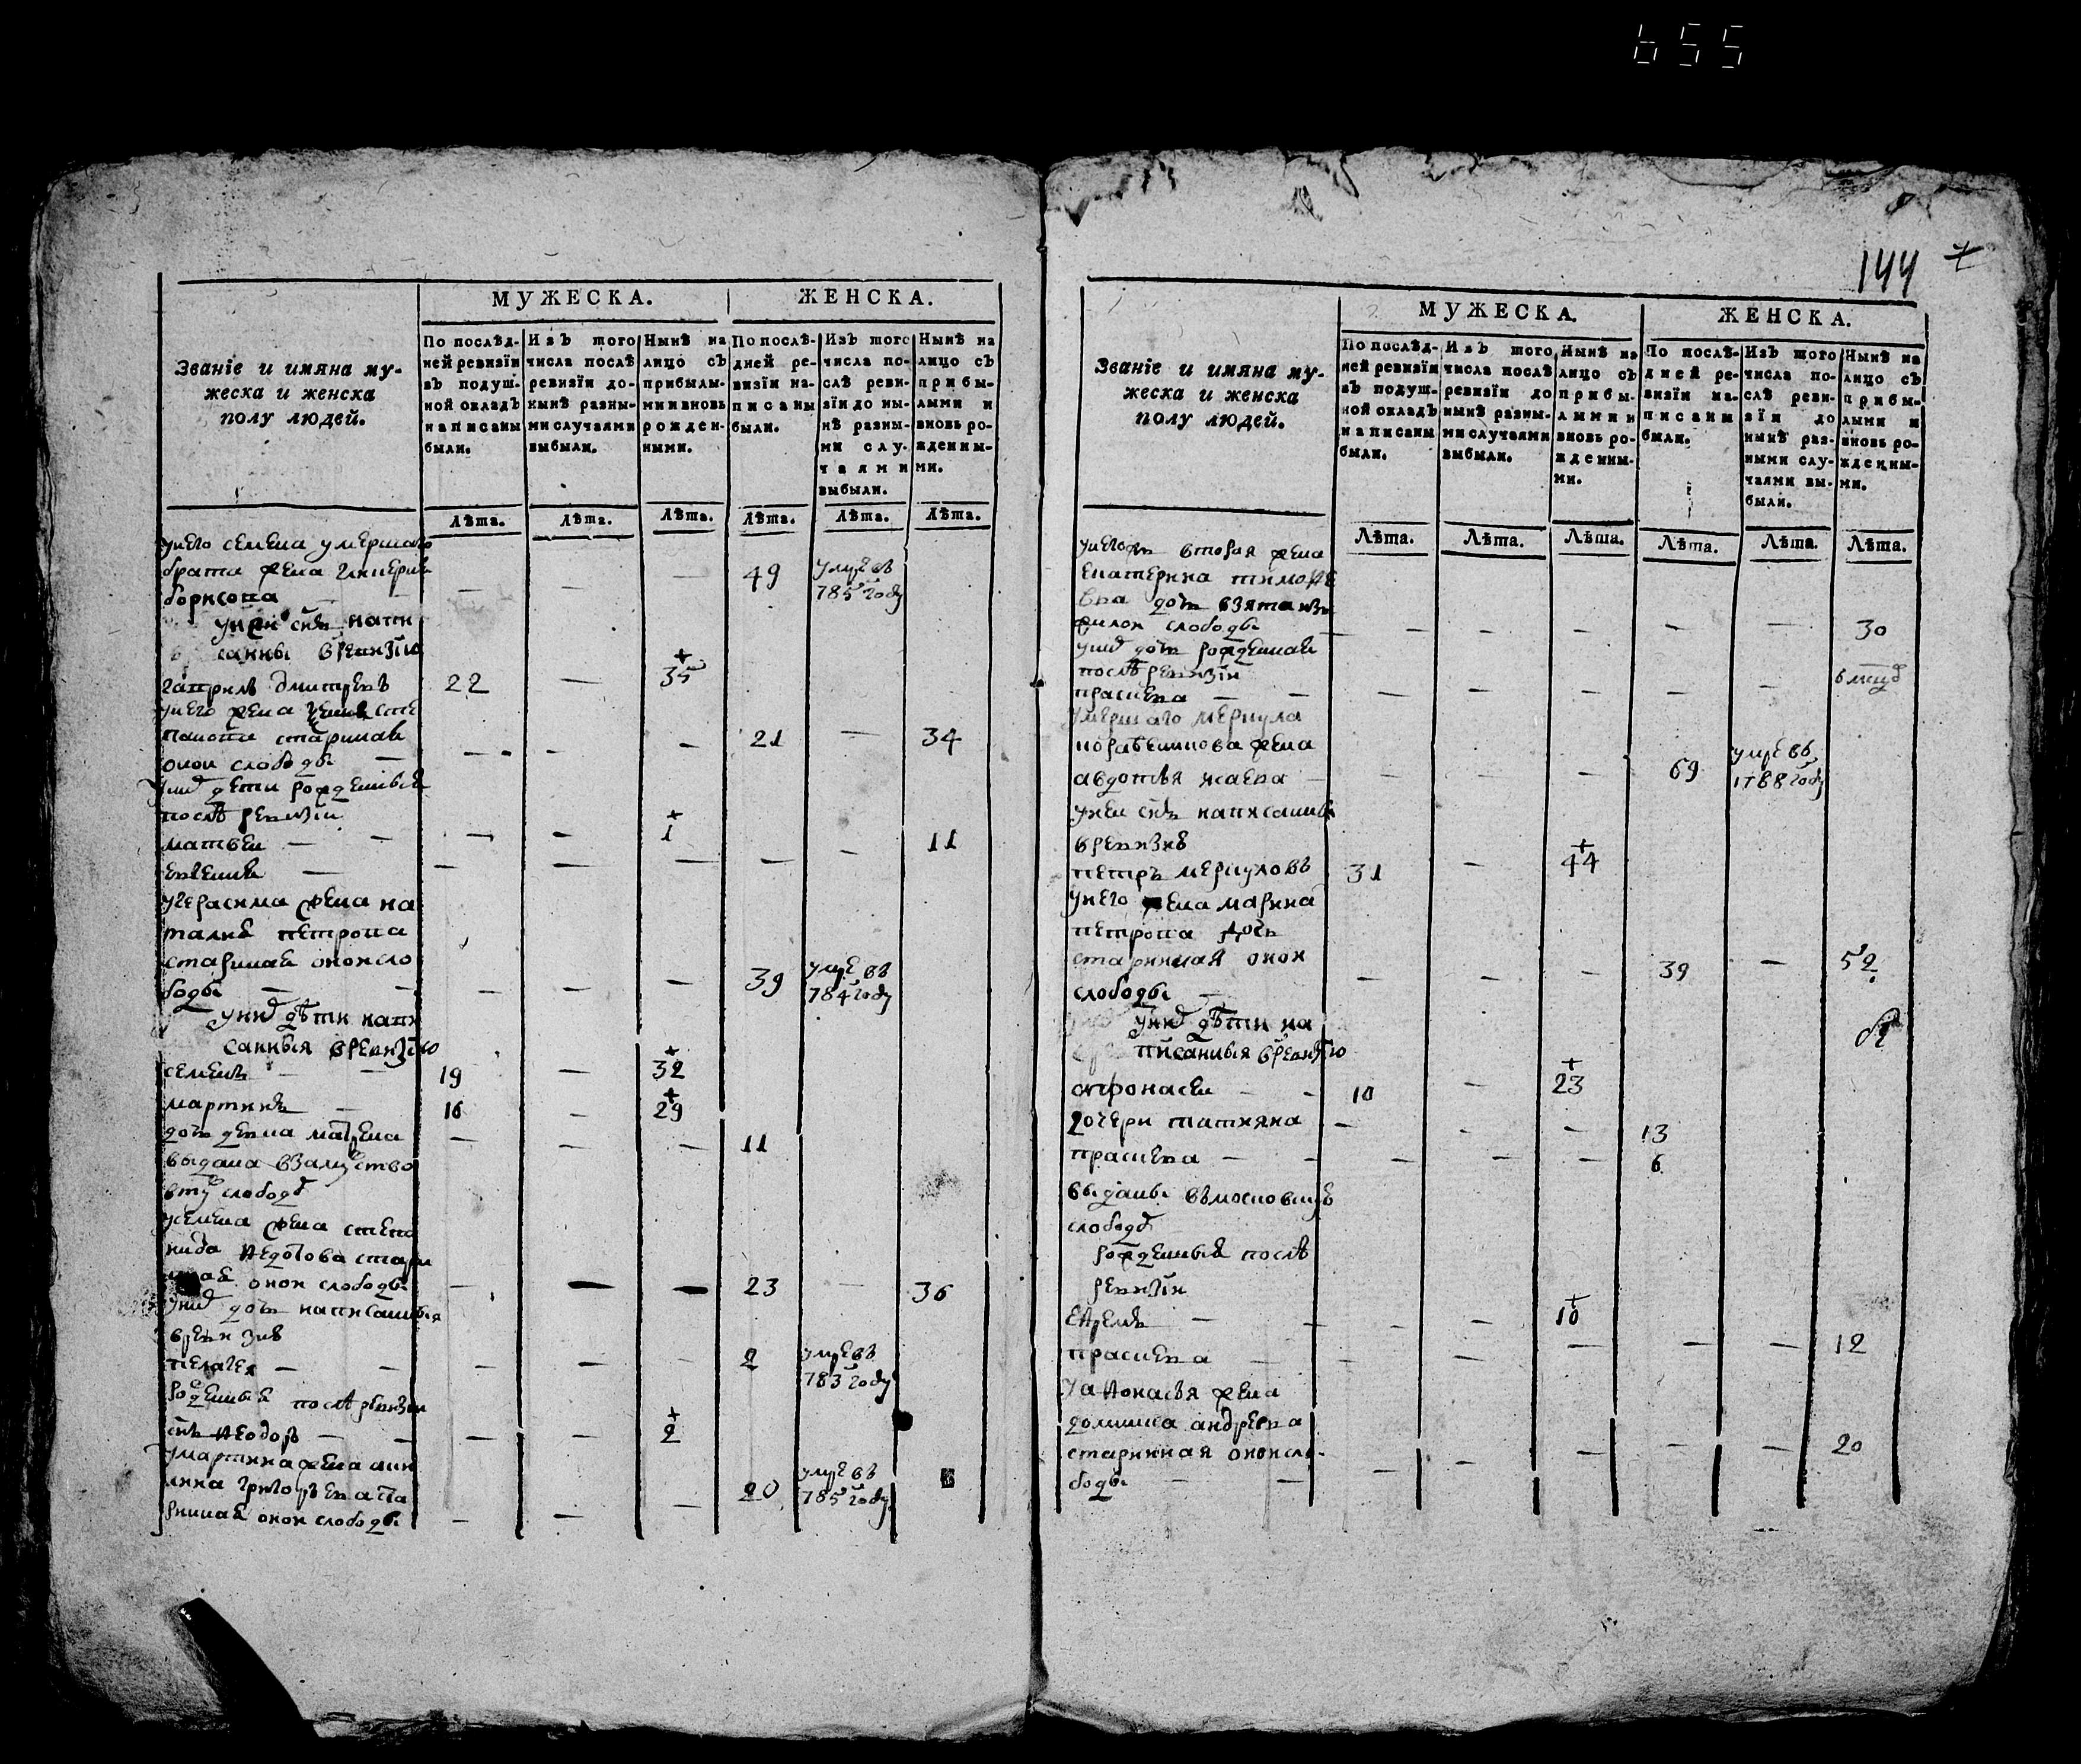 655
144
МУЖЕСКА.
ЖЕНСКА.
Званіе и имяна му-
жеска и женска
полу людей.
По послѣд-
ней ревизіи
въ подуш-
ной окладъ
написаны
были.
Изъ того
числа послѣ
ревизіи до-
нынѣ разны-
ми случаями
выбыли.
Нынѣ на
лицо съ
прибылы-
ми и вновь
рожден-
ными.
По послѣ-
дней ре-
визіи на-
писаны
были.
Изъ того
числа по-
слѣ реви-
зіи до ны-
нѣ разны-
ми слу-
чаями
выбыли.
Нынѣ на
лицо съ
прибы-
лыми и
вновь ро-
жденны-
ми.
Лѣта. Лѣта. Лѣта. Лѣта. Лѣта. Лѣта.
унего семена умершаго
брата жена 49 умре въ
борисова — — — 785 году
сннъ напи
санны вревизію
гаврилъ дмитревъ 22 — + 35
унего жена 21 — 34
старинная
оной слободы — — —
унихъ дети рожденныя
послѣ ревизіи
матвей — — — + 1 — 11
евгения — — — — — —
угерасима жена на
талия петрова
старинная оной сло 39 умре въ
боды — — — — 784 году
унихъ дѣти напи
санныя вревизію
семенъ — 19 — + 32
мартинъ — 16 — + 29
дочь девка матрена — — — 11
выдана взамужство
втуж слободу
усемена жена степа
нида федотова стари
ная оной слободы — — — 23 — 36
унихъ дочь написанныя
вревизию
пелагея — — — — 2 умре въ
783 году
рожденныя послѣ ревизіи
снъ федоръ — — — + 2
умартина жена аки
лина григорьевна ста 20 умре въ
ринная оной слободы — — — 785 году
МУЖЕСКА.
ЖЕНСКА.
Званіе и имяна му-
жеска и женска
полу людей.
По послѣд-
ней ревизіи
въ подуш-
ной окладъ
написаны
были.
Изъ того
числа послѣ
ревизіи до
нынѣ разны-
ми случаями
выбыли.
Нынѣ на
лицо съ
прибы-
лыми и
вновь ро-
жденны-
ми.
По послѣ-
дней ре-
визіи на-
писаны
были.
Изъ того
числа по-
слѣ реви-
зіи до
нынѣ раз-
ными слу-
чаями вы-
были.
Нынѣ на
лицо съ
прибы-
лыми и
вновь ро-
жденны-
ми.
Лѣта. Лѣта. Лѣта. Лѣта. Лѣта. Лѣта.
вторая жена
екатерина тимофе
вна дочь взята изъ
слободы — — — — — 30
унихъ дочь рожденная
послѣ ревизіи
прасковя — — — — — 6
умершаго меркула
жена
авдотья исаева — — — — 69 умре въ 1788 году
уней снъ написанны
вревизию
петръ меркуловъ 31 — + 44
унего жена марина
петрова дочь
старинная оной
слободы — — — — 39 — 52
унихъ дѣти на
писанныя вревизію
афонасей — — 10 — + 23
дочери татияна — — — 13
прасковя — — — — — 6
выданы
слободу
рожденныя послѣ
ревизіи
ефремъ — — — + 10
прасковя — — — — — — 12
уафонасья жена
домника андреева
старинная оной сло-
боды — — — — — — 20